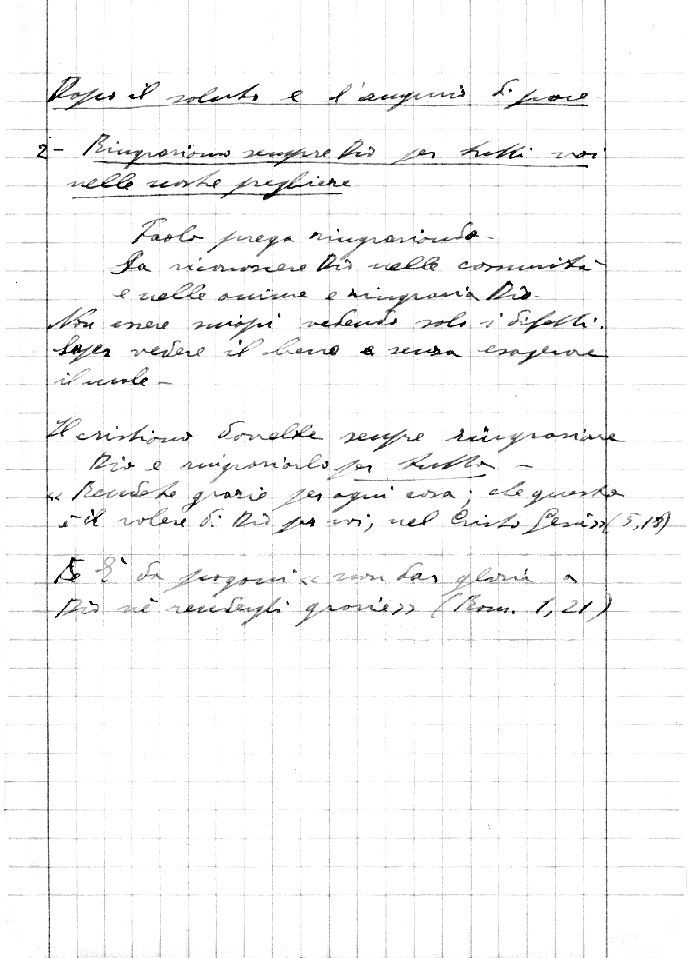 Dopo il saluto e l'augurio di pace
2 - Ringraziamo sempre Dio per tutti voi
nelle nostre preghiere
Paolo prega ringraziando.
Sa riconoscere Dio nelle comunità
e nelle anime e ringrazia Dio.
Non essere miopi vedendo solo i difetti.
Saper vedere il bene e senza esagerare
il male -
Il cristiano dovrebbe sempre ringraziare
Dio e ringraziarlo per tutto -
« Rendete grazie per ogni cosa; che questo
è il volere di Dio per voi, nel Cristo Gesù» (5,18)
È da pagani « non dar gloria a
Dio nè rendergli grazie» (Rom. 1,21)